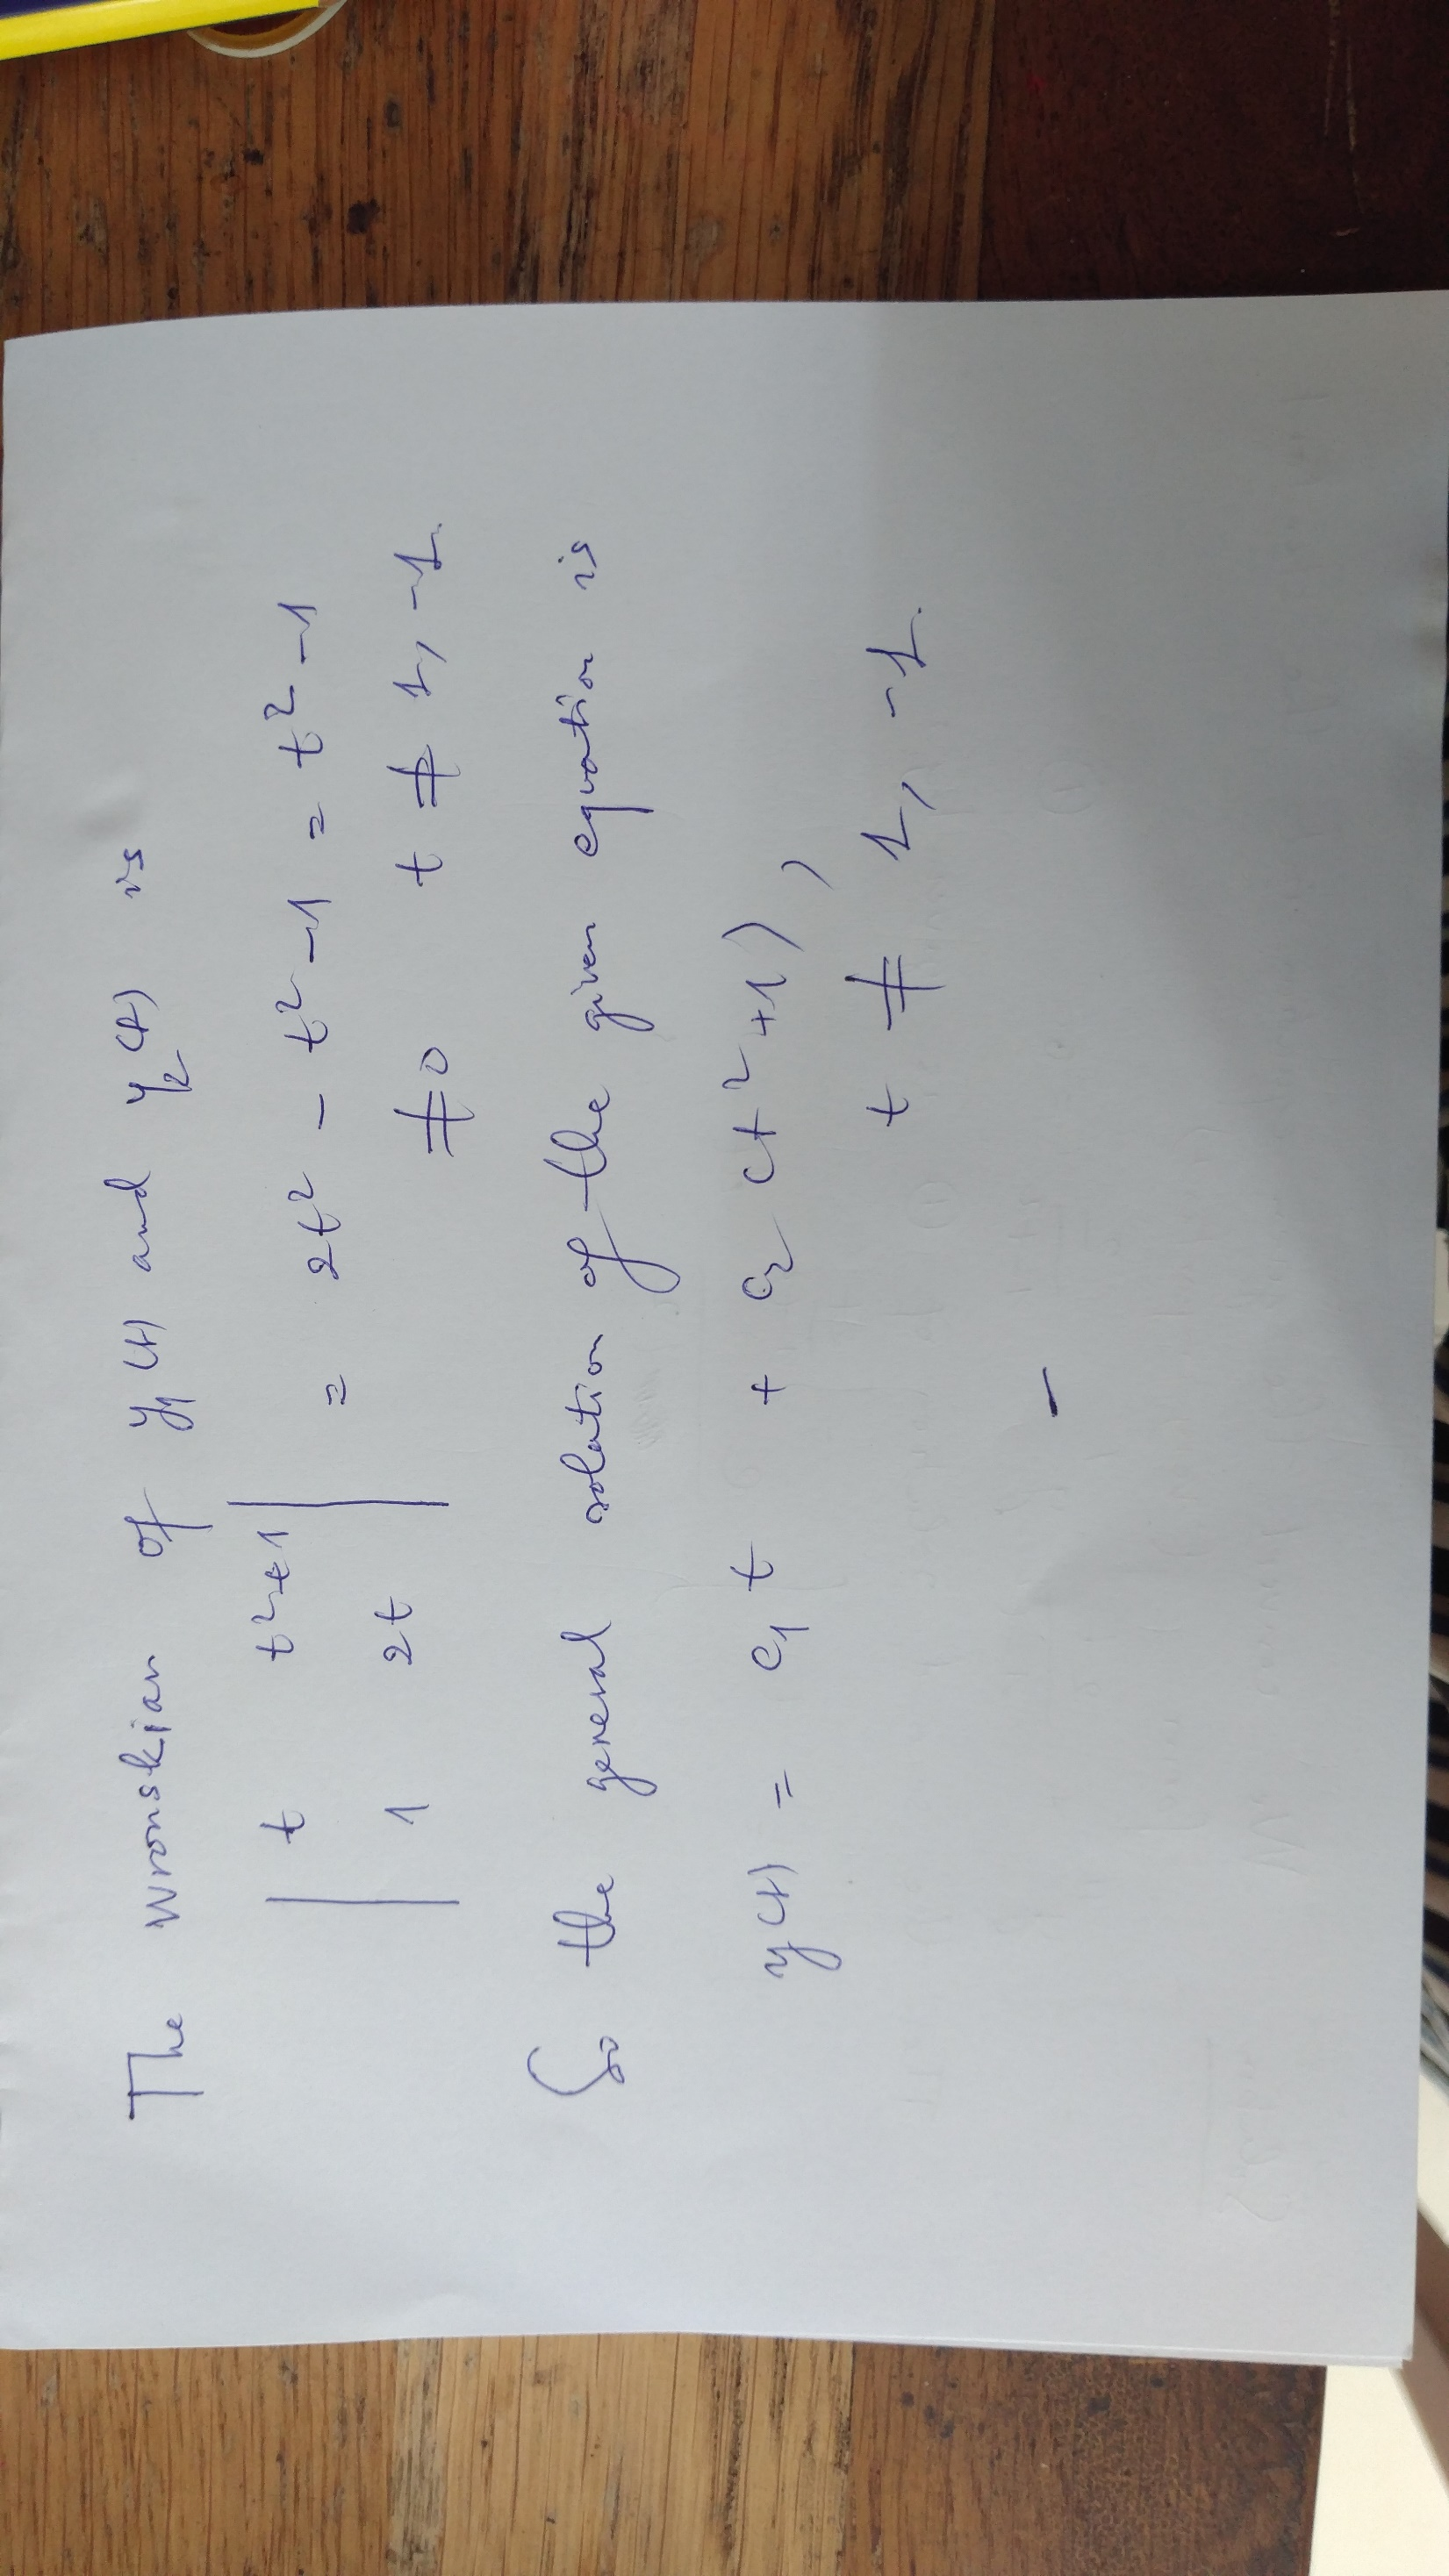 The Wronskian of y₁(t) and y₂(t) is
| t t²+1 |
| 1 2t | = 2t² - t² - 1 = t² - 1
≠ 0 t ≠ 1, -1.
So the general solution of the given equation is
y(t) = c₁ t + c₂ (t² + 1),
t ≠ 1, -1.